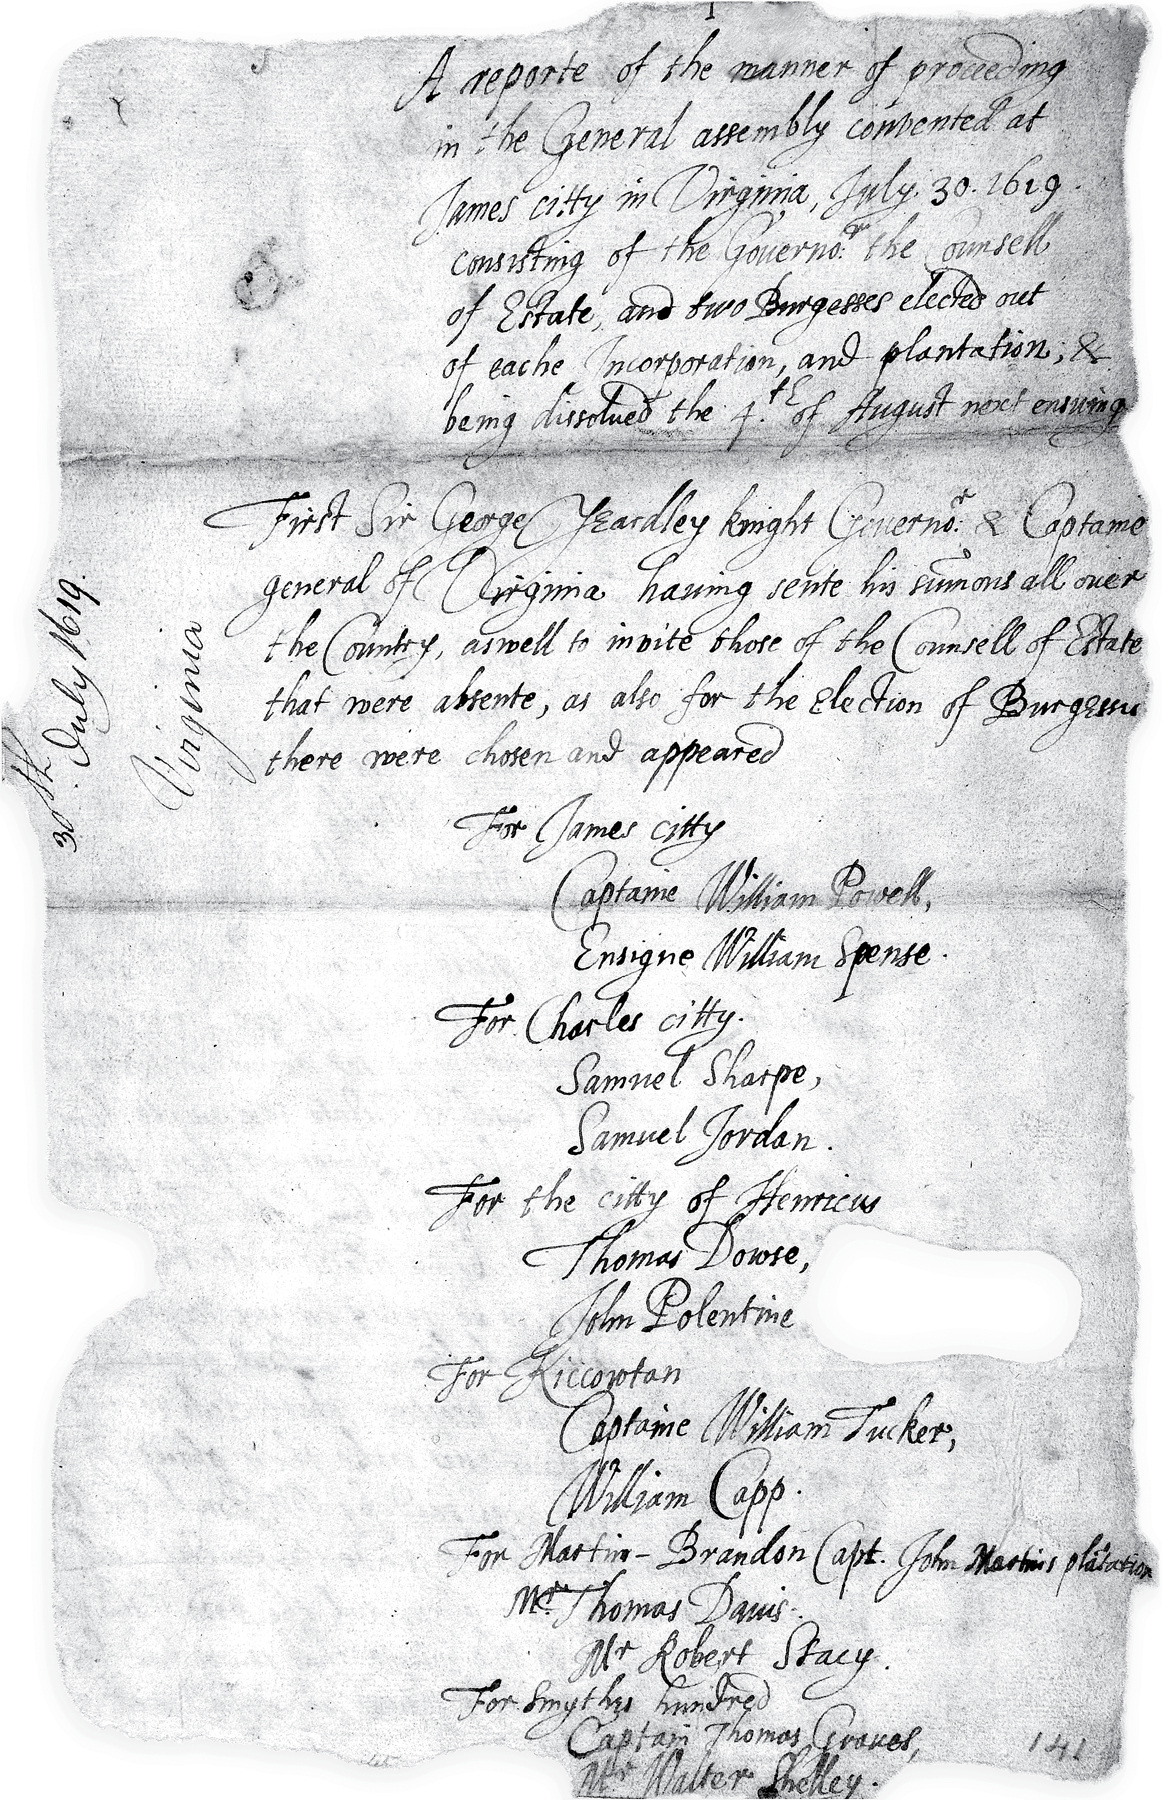 1
A reporte of the manner of proceeding
in the General assembly convented at
James citty in Virginia, July. 30. 1619.
consisting of the Governo:r the Counsell
of Estate, and two Burgesses elected out
of eache Incorporation, and plantation; &
being dissolved the 4.th of August next ensuing
First Sir George Yeardley knight Governo:r & Captaine
general of Virginia having sente his sumons all over
the Country, aswell to invite those of the Counsell of Estate
that were absente, as also for the Election of Burgesses
there were chosen and appeared
30th July 1619.
Virginia
For James citty
Captaine William Powell,
Ensigne William Spense.
For Charles citty.
Samuel Sharpe,
Samuel Jordan.
For the citty of Henricus
Thomas Dowse,
John Polentine
For Kiccowtan
Captaine William Tucker,
William Capp.
For Martin-Brandon Capt. John Martins plātation
Mr Thomas Davis.
Mr Robert Stacy.
For Smythes hundred
Captain Thomas Graves,
Mr Walter Shelley.
141